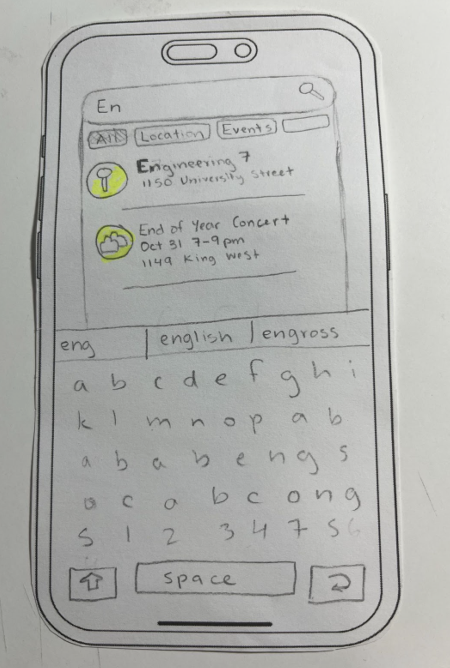 En
All Location Events
Engineering 7
1150 University Street
End of Year Concert
Oct 31 7-9pm
1149 King West
eng english engross
a b c d e f g h i
k l m n o p a b
a b a b e n g s
a c a b c o n g
S 1 2 3 4 7 5 6
space